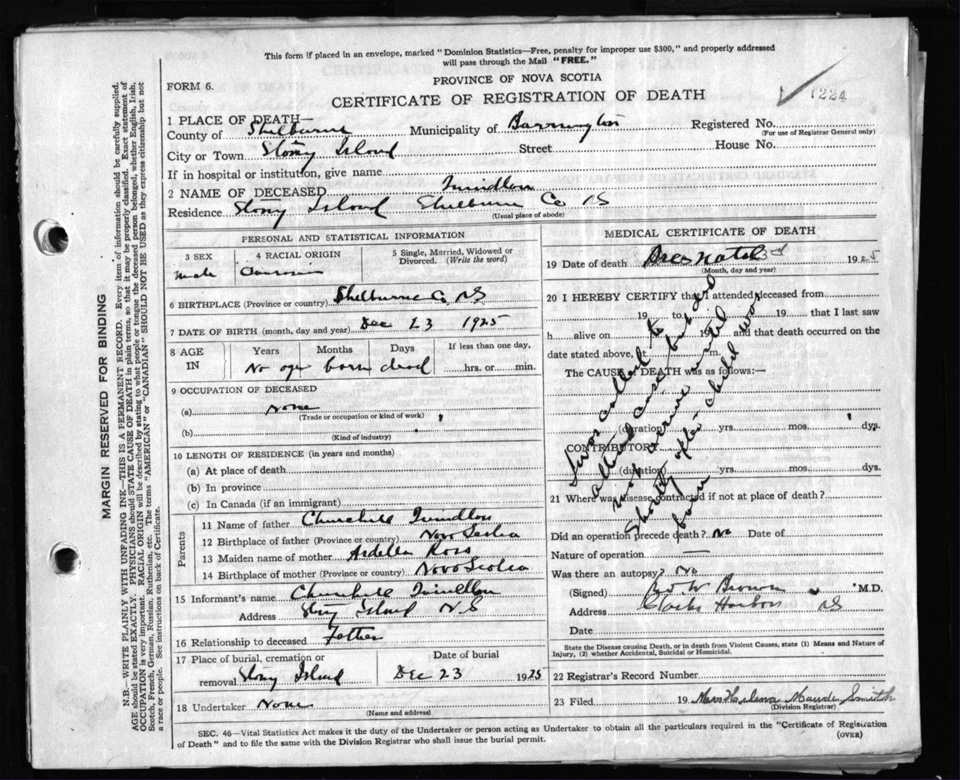 This form if placed in an envelope, marked "Dominion Statistics—Free, penalty for improper use $300," and properly addressed
will pass through the Mail "FREE."
PROVINCE OF NOVA SCOTIA
FORM 6.
CERTIFICATE OF REGISTRATION OF DEATH
1224
1 PLACE OF DEATH—
County of Shelburne Municipality of Barrington Registered No.
(For use of Registrar General only)
City or Town Stony Island Street House No.
If in hospital or institution, give name
2 NAME OF DECEASED
Residence Stony Island Shelburne Co NS
(Usual place of abode)
PERSONAL AND STATISTICAL INFORMATION
3 SEX 4 RACIAL ORIGIN 5 Single, Married, Widowed or Divorced. (Write the word)
male
6 BIRTHPLACE (Province or country) Shelburne Co, NS
7 DATE OF BIRTH (month, day and year) Dec 23 1925
8 AGE IN Years Months Days If less than one day,
No age born dead hrs. or min.
9 OCCUPATION OF DECEASED
(a) None
(Trade or occupation or kind of work)
(b)
(Kind of industry)
10 LENGTH OF RESIDENCE (in years and months)
(a) At place of death
(b) In province
(c) In Canada (if an immigrant)
Parents
11 Name of father Churchill
12 Birthplace of father (Province or country) Nova Scotia
13 Maiden name of mother Ardella Ross
14 Birthplace of mother (Province or country) Nova Scotia
15 Informant's name Churchill
Address Stony Island N.S
16 Relationship to deceased Father
17 Place of burial, cremation or removal Stony Island Date of burial Dec 23 1925
18 Undertaker None
(Name and address)
MEDICAL CERTIFICATE OF DEATH
19 Date of death 1925
(Month, day and year)
20 I HEREBY CERTIFY that I attended deceased from
19 to 19 that I last saw
h alive on 19 and that death occurred on the
date stated above, at m.
The CAUSE OF DEATH was as follows:—
I was called to
attend case but did
not arrive until
shortly after child was
born
(duration) yrs. mos. dys.
CONTRIBUTORY
(duration) yrs. mos. dys.
21 Where was disease contracted if not at place of death?
Did an operation precede death? No Date of
Nature of operation —
Was there an autopsy? No
(Signed) Brown M.D.
Address Clarks Harbor NS
Date
State the Disease causing Death, or in death from Violent Causes, state (1) Means and Nature of
Injury, (2) whether Accidental, Suicidal or Homicidal.
22 Registrar's Record Number
23 Filed 19 Maude Smith
(Division Registrar)
SEC. 46—Vital Statistics Act makes it the duty of the Undertaker or person acting as Undertaker to obtain all the particulars required in the "Certificate of Registration
of Death" and to file the same with the Division Registrar who shall issue the burial permit. (OVER)
MARGIN RESERVED FOR BINDING
N.B.—WRITE PLAINLY WITH UNFADING INK—THIS IS A PERMANENT RECORD. Every item of information should be carefully supplied.
AGE should be stated EXACTLY. PHYSICIANS should STATE CAUSE OF DEATH in plain terms, so that it may be properly classified. Exact statement of
OCCUPATION is very important. RACIAL ORIGIN will be described by stating to what people or tongue the deceased person belonged, whether English, Irish,
Scotch, French, German, Russian, Ruthenian, etc. The terms "AMERICAN" or "CANADIAN" SHOULD NOT BE USED as they express citizenship but not
a race or people. See instructions on back of Certificate.